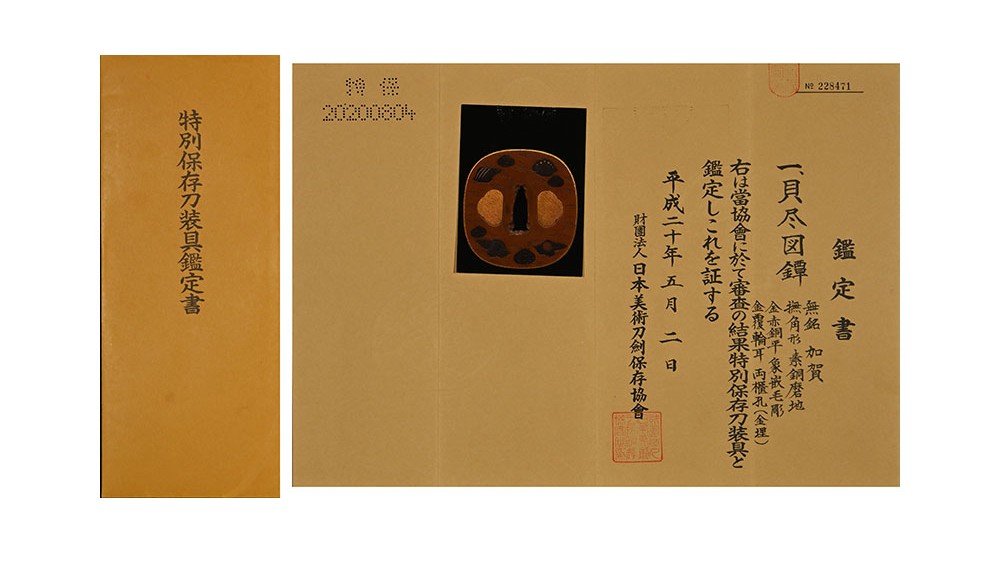 特別保存刀装具鑑定書
特保
20200804
№ 228471
鑑定書
一、貝尽図鐔
無銘 加賀
撫角形 素銅磨地
金赤銅平象嵌毛彫
金覆輪耳 両櫃孔(金埋)
右は當協會に於て審査の結果特別保存刀装具と
鑑定しこれを証する
平成二十年五月二日
財團法人 日本美術刀劍保存協會